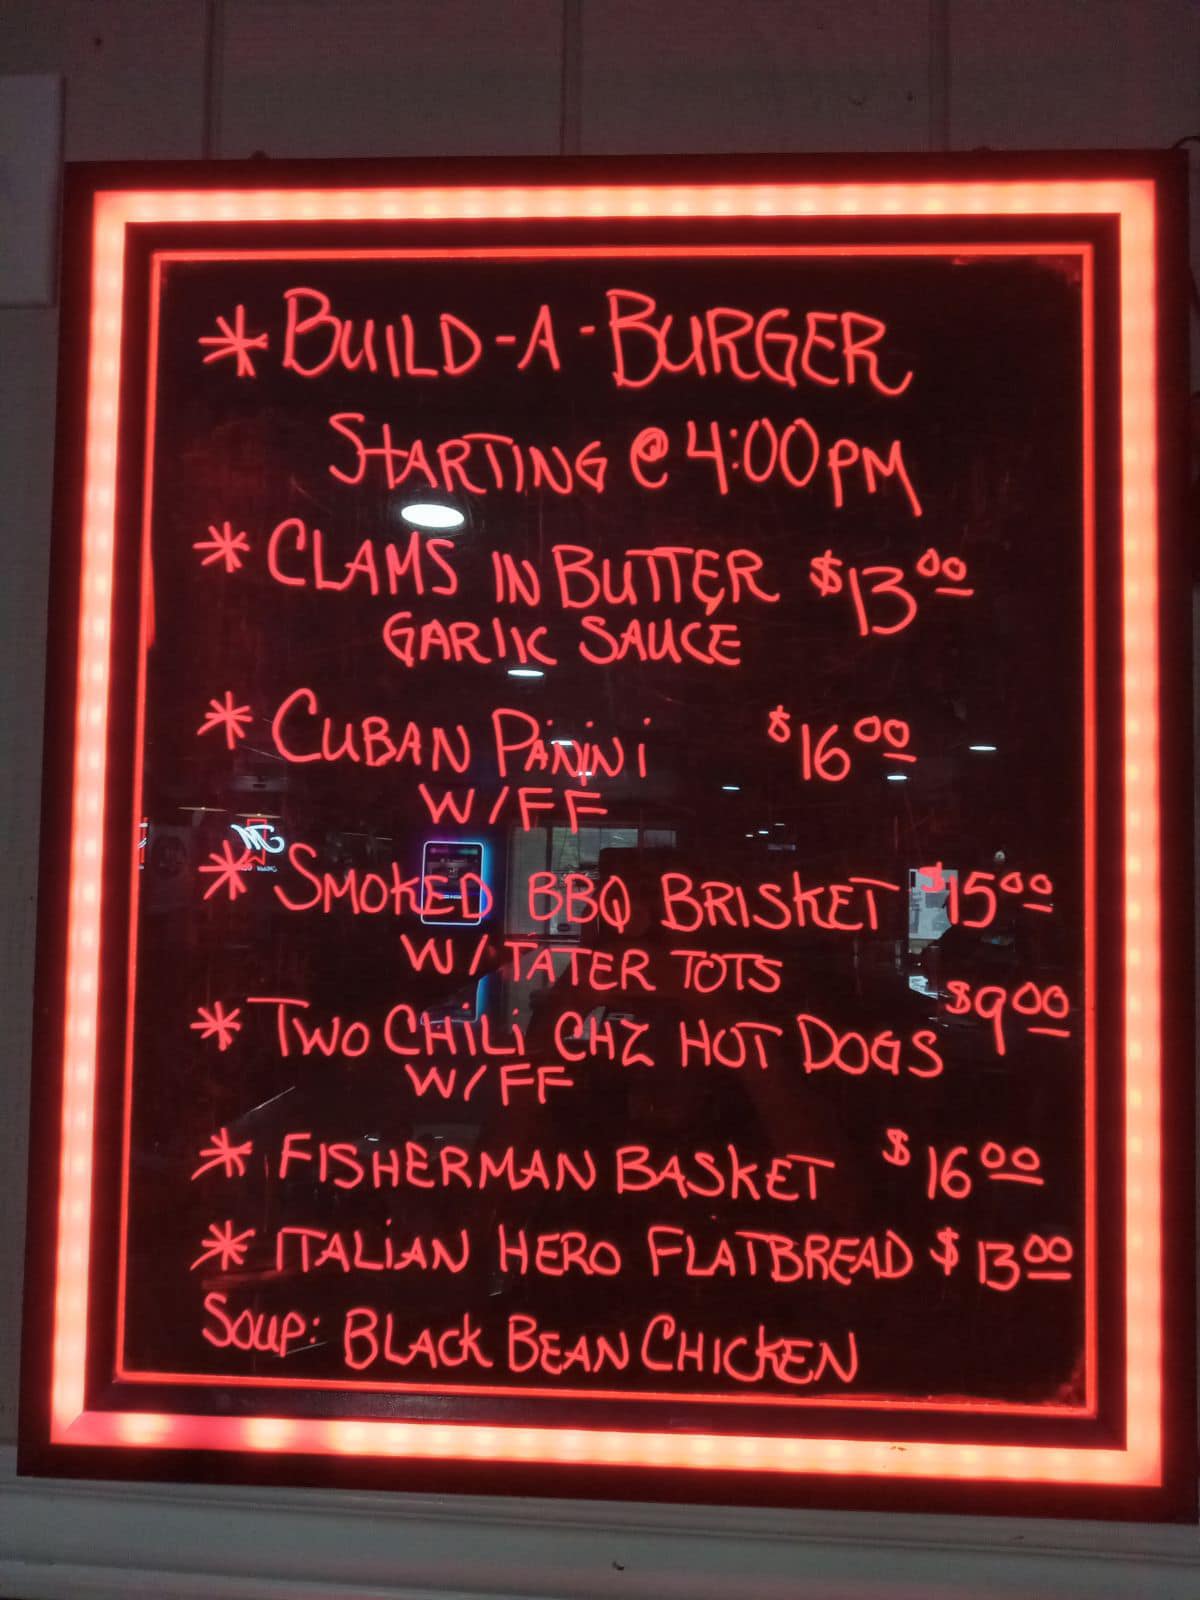 * BUILD-A-BURGER
STARTING @ 4:00 PM
* CLAMS IN BUTTER $13.00
GARLIC SAUCE
* CUBAN PANINI $16.00
W/FF
* SMOKED BBQ BRISKET $15.00
W/ TATER TOTS
* TWO CHILI CHZ HOT DOGS $9.00
W/FF
* FISHERMAN BASKET $16.00
* ITALIAN HERO FLATBREAD $13.00
SOUP: BLACK BEAN CHICKEN